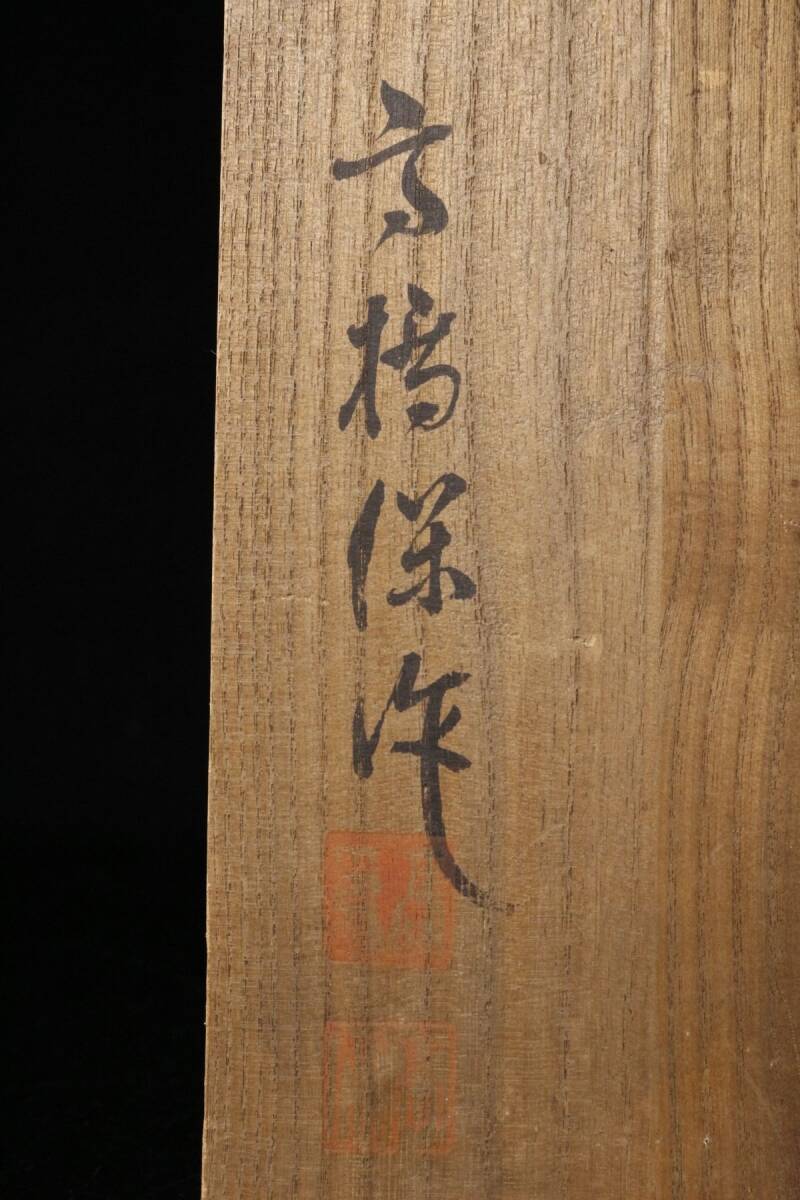 高橋保作